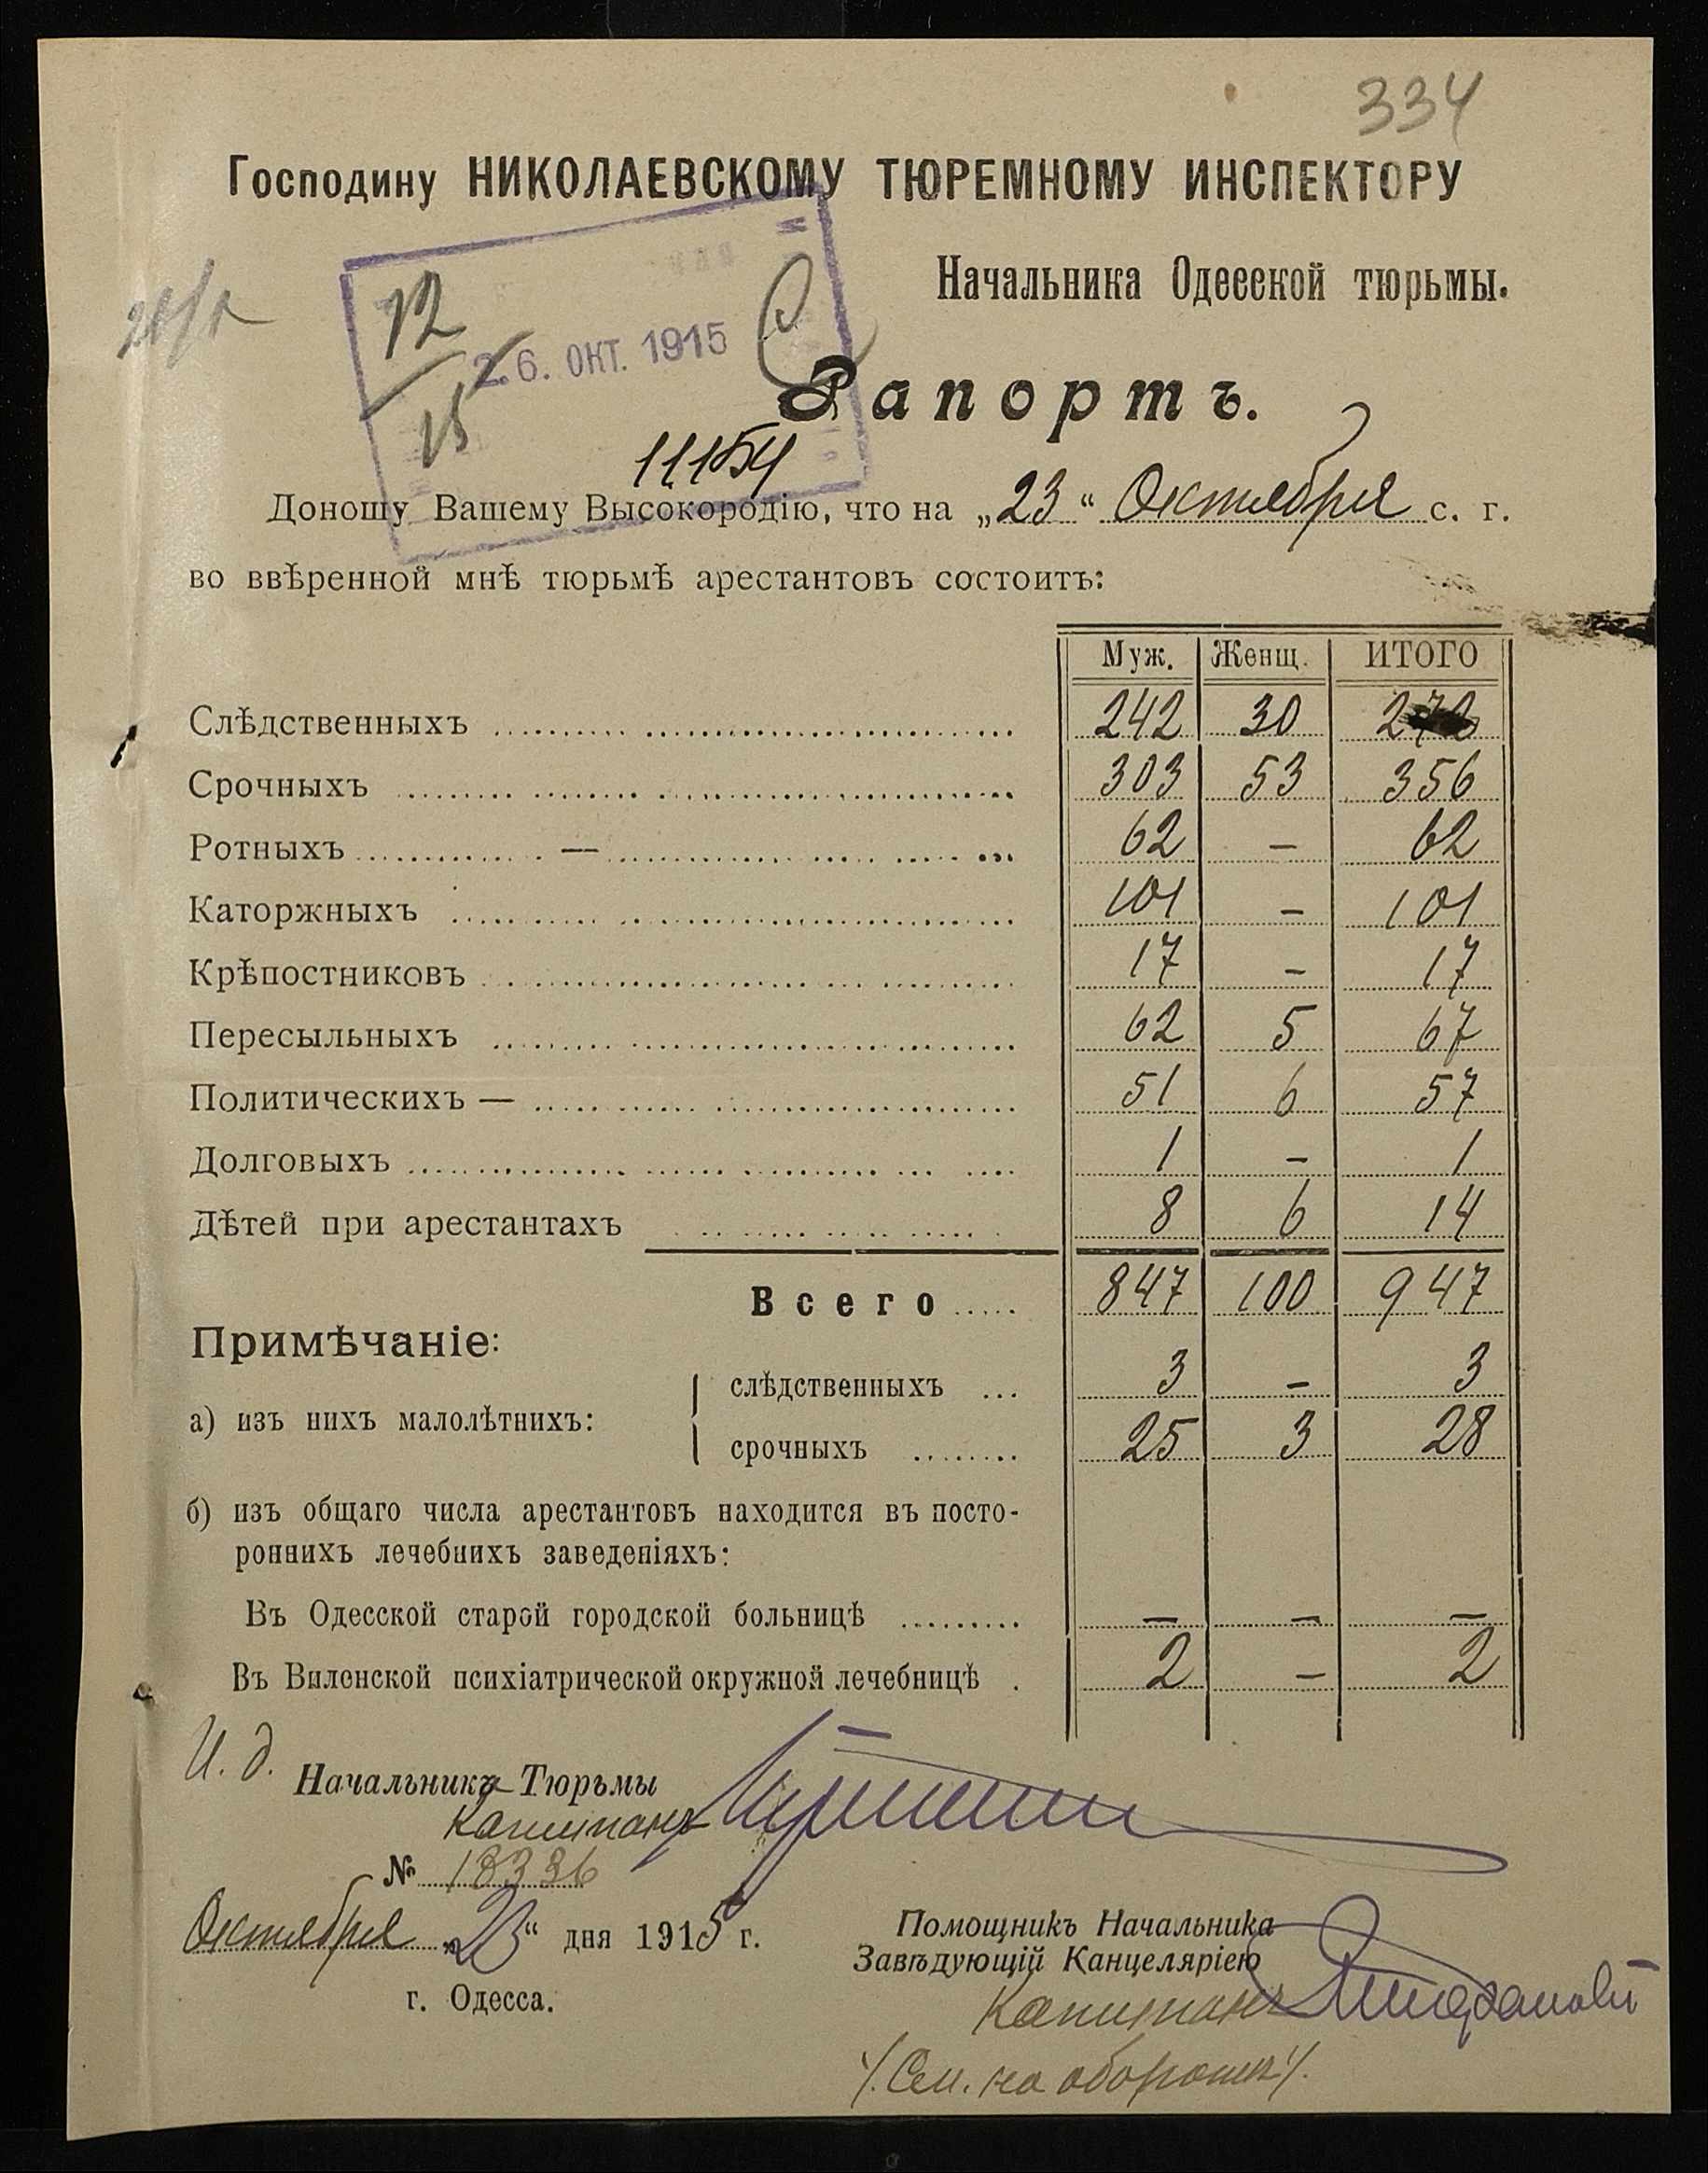 334
Господину НИКОЛАЕВСКОМУ ТЮРЕМНОМУ ИНСПЕКТОРУ
Начальника Одесской тюрьмы.
12
26. ОКТ. 1915
15
Рапортъ.
11154
Доношу Вашему Высокородію, что на „23“ Октября с. г.
во ввѣренной мнѣ тюрьмѣ арестантовъ состоитъ:
Муж. Женщ. ИТОГО
Слѣдственныхъ 242 30 272
Срочныхъ 303 53 356
Ротныхъ — 62 – 62
Каторжныхъ 101 – 101
Крѣпостниковъ 17 – 17
Пересыльныхъ 62 5 67
Политическихъ — 51 6 57
Долговыхъ 1 – 1
Дѣтей при арестантахъ 8 6 14
Всего 847 100 947
Примѣчаніе:
а) изъ нихъ малолѣтнихъ:
слѣдственныхъ 3 – 3
срочныхъ 25 3 28
б) изъ общаго числа арестантовъ находится въ посто-
роннихъ лечебнихъ заведеніяхъ:
Въ Одесской старой городской больницѣ – – –
Въ Виленской психіатрической окружной лечебницѣ 2 – 2
И. д. Начальника Тюрьмы
Капитанъ
№ 18336
Октября „23“ дня 1915 г.
г. Одесса.
Помощникъ Начальника
Завѣдующій Канцеляріею
Капитанъ
/. См. на оборотѣ /.